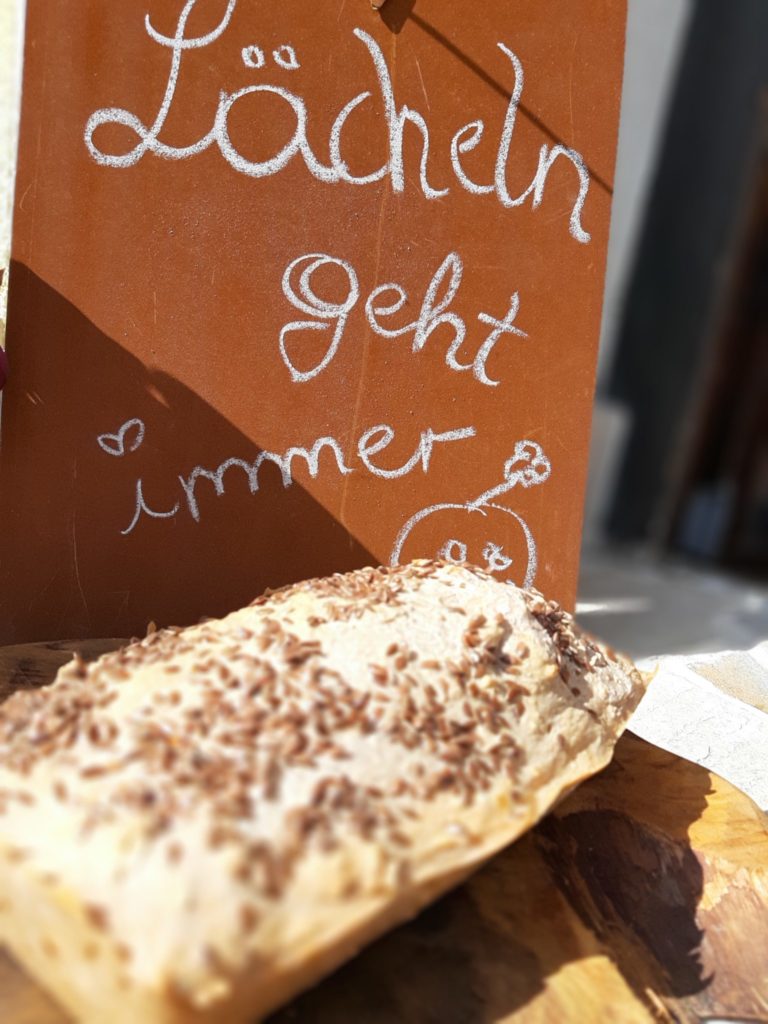 Lächeln
geht
immer